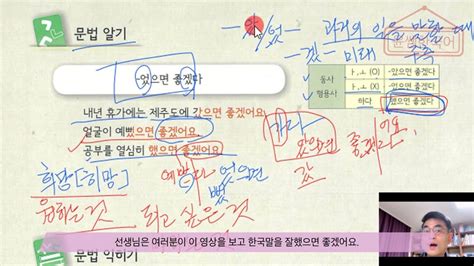 문법 알기
-았/었-
과거의 일을 말할 때
-겠- 미래 추측
-었으면 좋겠다
동사
형용사
ㅏ, ㅗ (O) -았으면 좋겠다
ㅏ, ㅗ (X) -었으면 좋겠다
하다 했으면 좋겠다
내년 휴가에는 제주도에 갔으면 좋겠어요.
얼굴이 예뻤으면 좋겠어요.
공부를 열심히 했으면 좋겠어요.
가다
았으면 좋겠어요
갔
희망[히망]
예쁘다 었으면
뻤
원하는 것
되고 싶은 것
선생님은 여러분이 이 영상을 보고 한국말을 잘했으면 좋겠어요.
문법 익히기